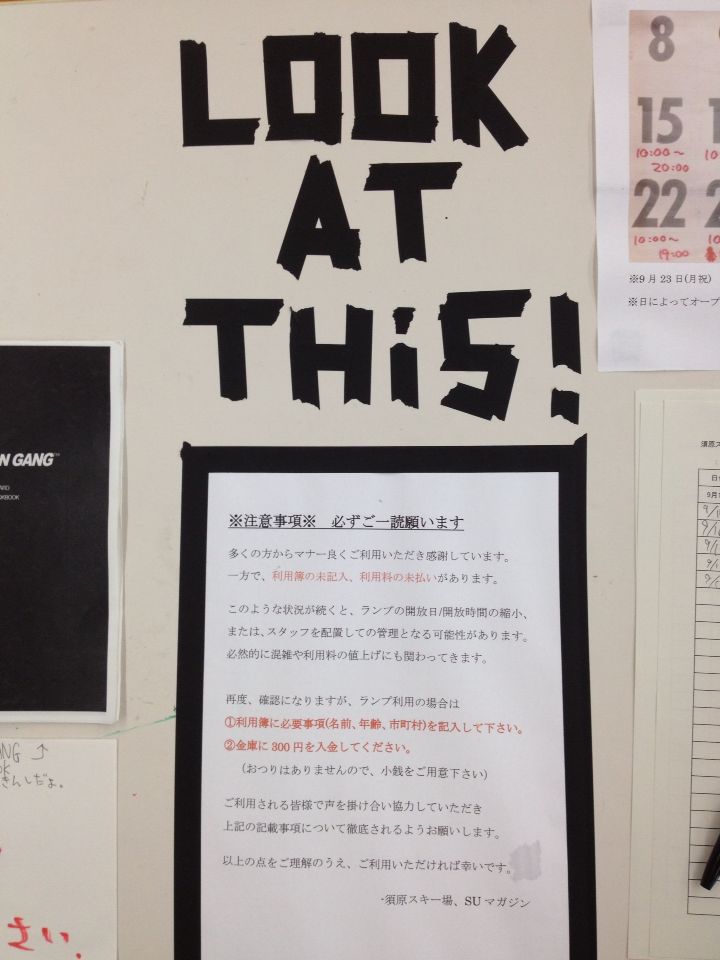 LOOK
AT
THiS!
8
15
10:00～
20:00
22
10:00～
19:00
※9月23日(月祝)
※日によってオープ
N GANG™
※注意事項※　必ずご一読願います
多くの方からマナー良くご利用いただき感謝しています。
一方で、利用簿の未記入、利用料の未払いがあります。
このような状況が続くと、ランプの開放日/開放時間の縮小、
または、スタッフを配置しての管理となる可能性があります。
必然的に混雑や利用料の値上げにも関わってきます。
再度、確認になりますが、ランプ利用の場合は
①利用簿に必要事項(名前、年齢、市町村)を記入して下さい。
②金庫に300円を入金してください。
(おつりはありませんので、小銭をご用意下さい)
ご利用される皆様で声を掛け合い協力していただき
上記の記載事項について徹底されるようお願いします。
以上の点をご理解のうえ、ご利用いただければ幸いです。
-須原スキー場、SUマガジン
須原ス
ANG ↑
OK
きんしだよ。
さい.